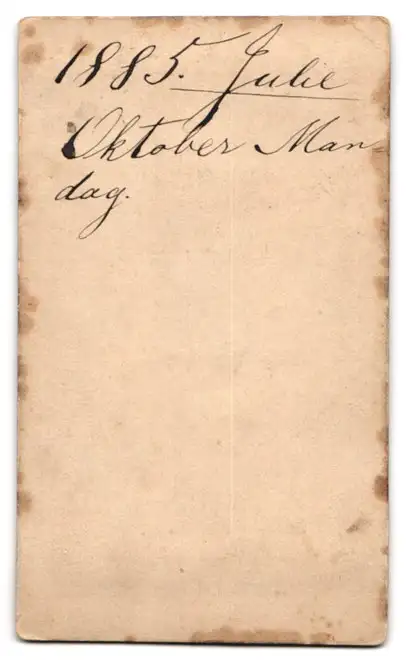 1885. Julie
Oktober Man-
dag.